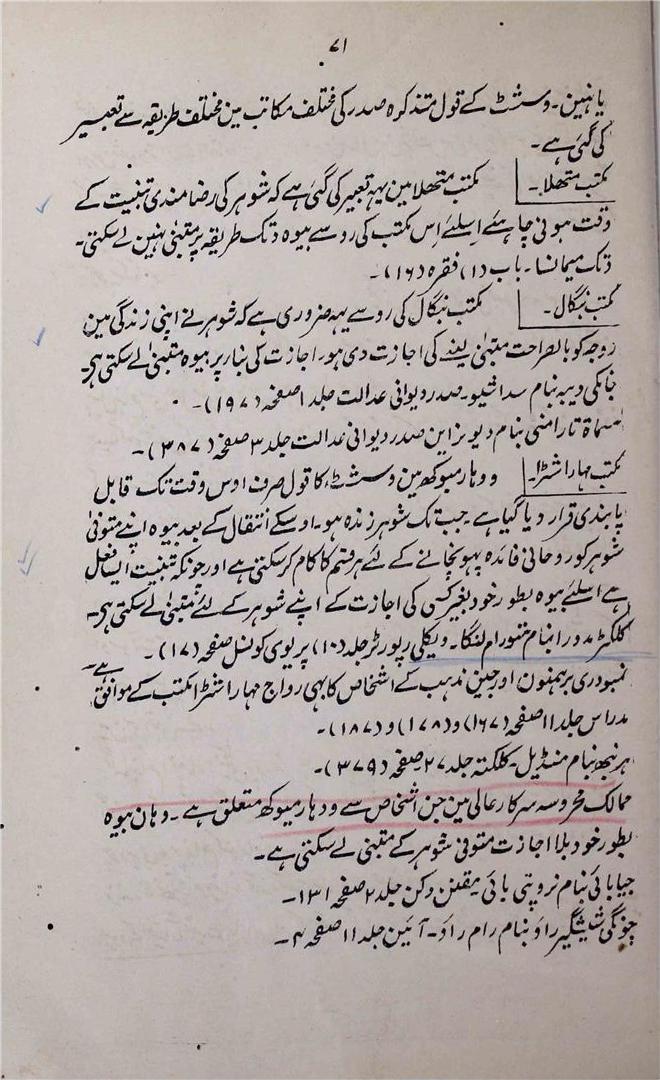 ۷۱
یا نہین۔ وسشٹ کے قول متذکرہ صدر کی مختلف مکاتب مین مختلف طریقہ سے تعبیر
کی گئی ہے۔
مکتب متھلا۔ مکتب متھلا مین یہہ تعبیر کی گئی ہے کہ شوہر کی رضامندی تبنیت کے
وقت ہونی چاہئے اسلئے اس مکتب کی رو سے بیوہ دتک طریقہ پر متبنیٰ نہین لے سکتی۔
دتک میمانسا۔ باب (۱) فقرہ (۱۶)۔
مکتب بنگال۔ مکتب بنگال کی رو سے یہہ ضروری ہے کہ شوہر نے اپنی زندگی مین
زوجہ کو بالصراحت متبنیٰ لینے کی اجازت دی ہو۔ اجازت کی بنار پر بیوہ متبنیٰ لے سکتی ہی۔
جانکی دیبہ بنام سداشیو۔ صدر دیوانی عدالت جلد ۱ صفحہ (۱۹۷)۔
مسماۃ تارامنی بنام دیونراین صدر دیوانی عدالت جلد ۳ صفحہ (۳۸۷)۔
مکتب مہاراشٹرا۔ ووہار میوکھ مین وسشٹ، کا قول صرف اوس وقت تک قابل
پابندی قرار دیا گیا ہے۔ جب تک شوہر زندہ ہو۔ اوسکے انتقال کے بعد بیوہ اپنے متوفیٰ
شوہر کو روحانی فائدہ پہونچانے کے لئے ہر قسم کا کام کر سکتی ہے اور چونکہ تبنیت ایسا فعل
ہے اسلئے بیوہ بطور خود بغیر کسی کی اجازت کے اپنے شوہر کے لئے متبنیٰ لے سکتی ہی۔
کلکٹر مدورا بنام متورام لنگا۔ ویکلی رپورٹر جلد (۱۰) پریوی کونسل صفحہ (۱۷)۔
نمبودری برہمنون اور جین مذہب کے اشخاص کا بہی رواج مہاراشٹرا مکتب کے موافق ہے۔
مدراس جلد ۱۱ صفحہ (۱۶۷) و (۱۷۸) و (۱۸۷)۔
ہرنبھ بنام منڈیل۔ کلکتہ جلد ۲۷ صفحہ (۳۷۹)۔
ممالک محروسہ سرکار عالی مین جن اشخاص سے ووہار میوکھ متعلق ہے۔ وہان بیوہ
بطور خود بلا اجازت متوفی شوہر کے متبنی لے سکتی ہے۔
جیابائی بنام نروپتی بائی مقنن دکن جلد ۲ صفحہ ۱۳۱۔
چونگی شیشگیر راؤ بنام رام راؤ۔ آئین جلد ۱۱ صفحہ ۴۔